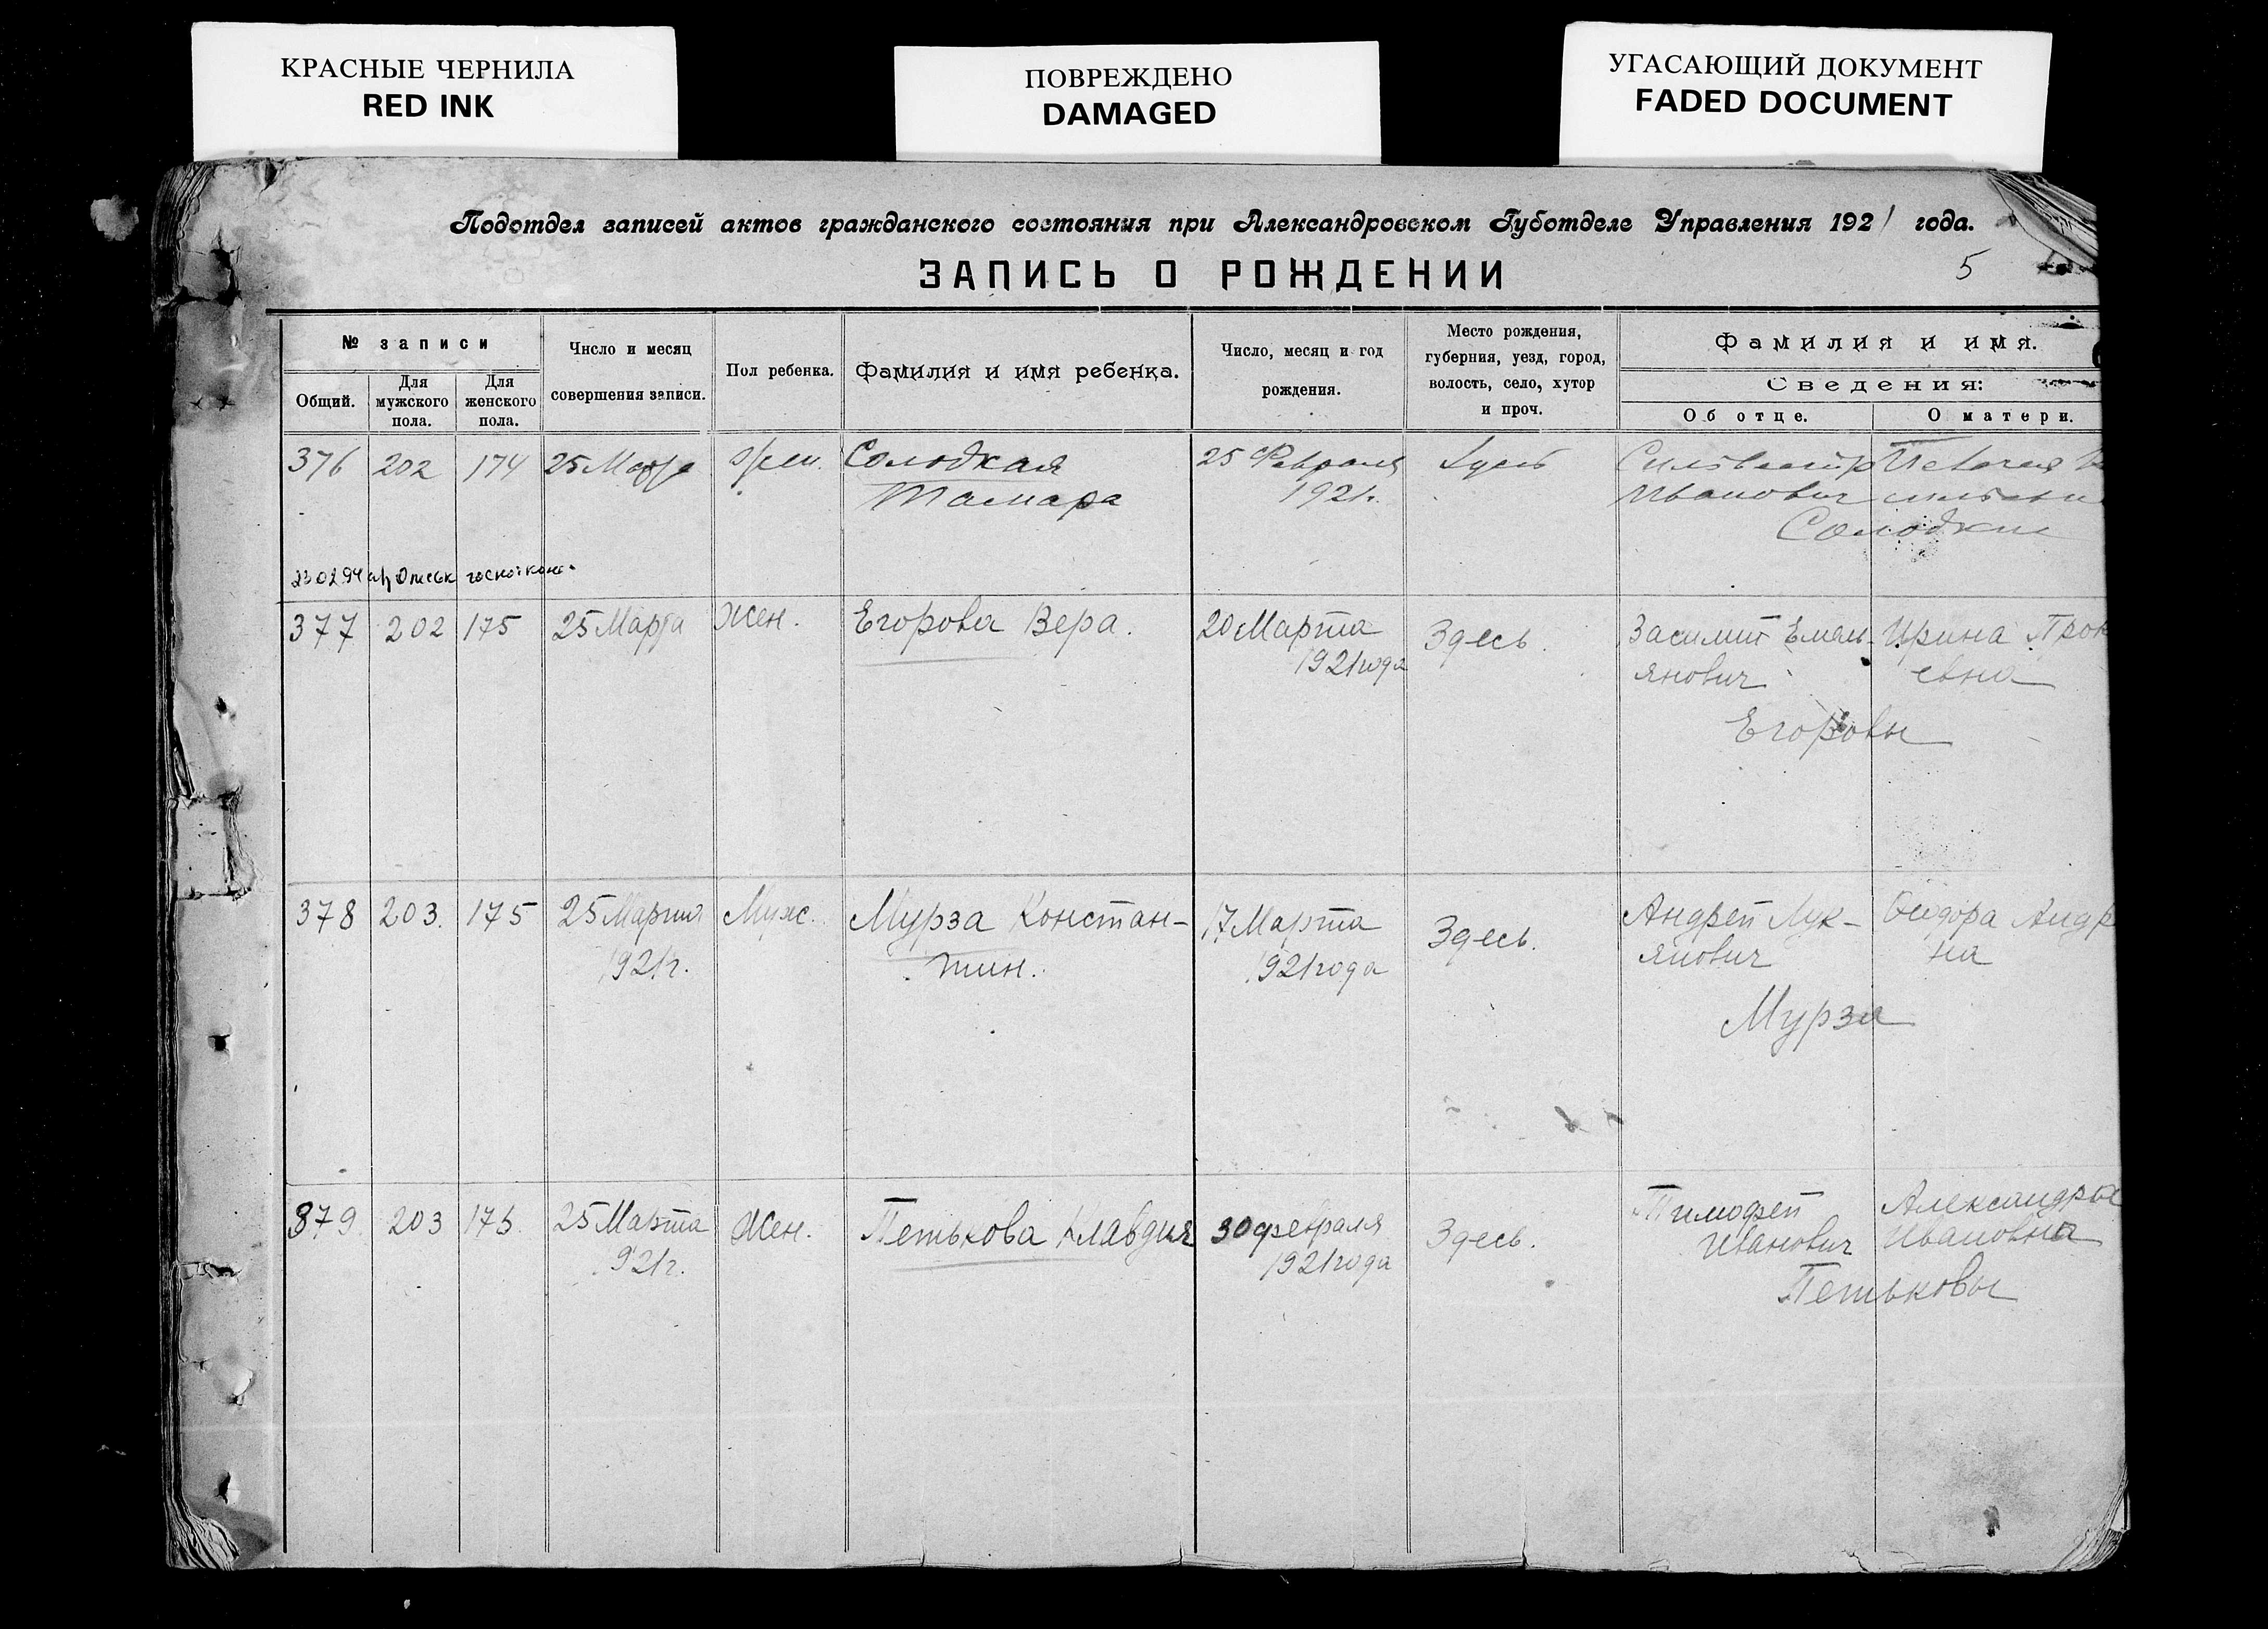 КРАСНЫЕ ЧЕРНИЛА
RED INK
ПОВРЕЖДЕНО
DAMAGED
УГАСАЮЩИЙ ДОКУМЕНТ
FADED DOCUMENT
Подотдел записей актов гражданского состояния при Александровском Губотделе Управления 1921 года.
ЗАПИСЬ О РОЖДЕНИИ
5
№ записи
Общий.
Для мужского пола.
Для женского пола.
Число и месяц
совершения записи.
Пол ребенка.
Фамилия и имя ребенка.
Число, месяц и год
рождения.
Место рождения,
губерния, уезд, город,
волость, село, хутор
и проч.
Фамилия и имя.
Сведения:
Об отце.
О матери.
376 202 174 25 Марта жен. Солодкая 25 Февраля Здесь
Тамара 1921г. Иванович
Солодкие
377 202 175 25 Марта Жен. Егорова Вера. 20 Марта Здесь. Емель- Ирина
1921 года янович евна
Егоровы
378 203. 175 25 Марта Муж. Мурза Констан- 17 Марта Здесь. Андрей Лук- Андр
1921г. тин. 1921 года янович на
Мурза
379 203 175 25 Марта Жен. Петькова Клавдия 30 февраля Здесь. Тимофей Александра
1921г. 1921 года Иванович Ивановна
Петьковы